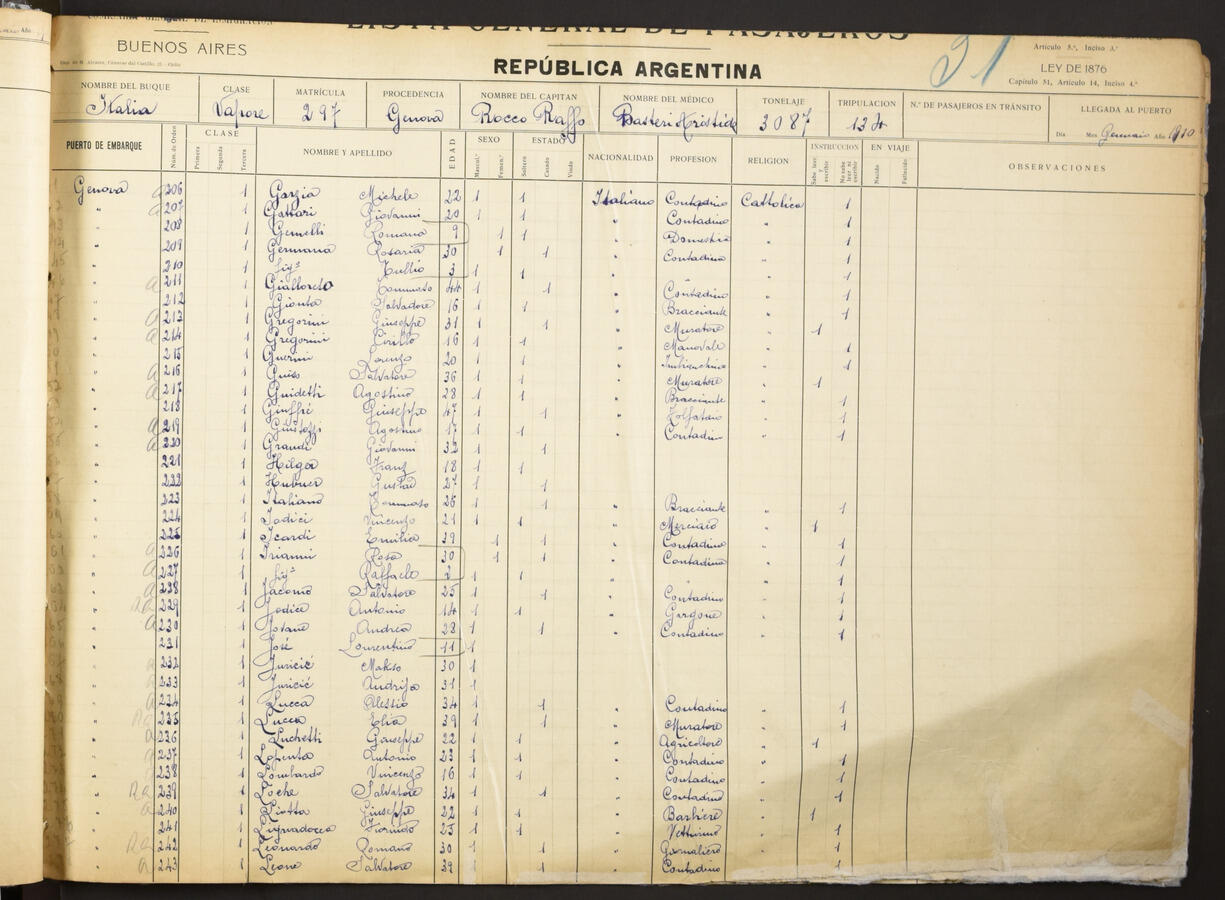 LISTA GENERAL DE PASAJEROS
BUENOS AIRES
REPÚBLICA ARGENTINA
21
Artículo 5.º, Inciso A.º
LEY DE 1876
Capítulo 51, Artículo 14, Inciso 4.º
NOMBRE DEL BUQUE CLASE MATRÍCULA PROCEDENCIA NOMBRE DEL CAPITAN NOMBRE DEL MÉDICO TONELAJE TRIPULACION N.º DE PASAJEROS EN TRÁNSITO LLEGADA AL PUERTO
Italia Vapore 297 Genova Rocco Raffo Basteri Aristide 3087 134 Día Mes Gennaio Año 1910
PUERTO DE EMBARQUE Núm. de Orden CLASE Primera Segunda Tercera NOMBRE Y APELLIDO EDAD SEXO Mascul.º Femen.º ESTADO Soltero Casado Viudo NACIONALIDAD PROFESION RELIGION INSTRUCCION Sabe leer y escribir No sabe leer ni escribir EN VIAJE Nacido Fallecido OBSERVACIONES
Genova 206 1 Garzia Michele 22 1 1 Italiano Contadino Cattolica 1
" 207 1 Gattari Giovanni 20 1 1 " Contadino " 1
" 208 1 Gemelli Romana 9 1 1 " Domestica " 1
" 209 1 Germana Rosaria 30 1 1 " Contadino " 1
" 210 1 fig.º Tullio 3 1 1 " " " 1
" 211 1 Gialloreto Tommaso 44 1 1 " Contadino " 1
" 212 1 Gionta Salvadore 16 1 1 " Bracciante " 1
" 213 1 Gregorini Giuseppe 31 1 1 " Muratore " 1
" 214 1 Gregorini Cirillo 16 1 1 " Manovale " 1
" 215 1 Guerini Lorenzo 20 1 1 " Imbianchino " 1
" 216 1 Salvatore 36 1 1 " Muratore " 1
" 217 1 Guidetti Agostino 28 1 1 " Bracciante " 1
" 218 1 Giuffré Giuseppe 47 1 1 " Zolfataio " 1
" 219 1 Agostino 17 1 1 " Contadino " 1
" 220 1 Grandi Giovanni 32 1 1
" 221 1 Hilga Franz 18 1 1
" 222 1 Hubner Gustav 27 1 1
" 223 1 Italiano Tommaso 26 1 1 " Bracciante " 1
" 224 1 Iodici Vincenzo 21 1 1 " Merciaio " 1
" 225 1 Icardi Emilia 39 1 1 " Contadino " 1
" 226 1 Irianni Rosa 30 1 1 " Contadina " 1
" 227 1 fig.º Raffaele 2 1 1 " " " 1
" 228 1 Jacomo Salvatore 25 1 1 " Contadino " 1
" 229 1 Jodice Antonio 14 1 1 " Garzone " 1
" 230 1 Jovane Andrea 28 1 1 " Contadino " 1
" 231 1 José Lourentino 11 1
" 232 1 Juricić Makso 30 1
" 233 1 Juricić Andrija 31 1
" 234 1 Lucca Alessio 34 1 1 " Contadino " 1
" 235 1 Lucca Elia 39 1 1 " Muratore " 1
" 236 1 Luchetti Giuseppe 22 1 1 " Agricoltore " 1
" 237 1 Lopenta Antonio 23 1 1 " Contadino " 1
" 238 1 Lombardo Vincenzo 16 1 1 " Contadino " 1
" 239 1 Loche Salvatore 34 1 1 " Contadino " 1
" 240 1 Liotta Giuseppe 22 1 1 " Barbiere " 1
" 241 1 Fiorindo 25 1 1 " Vetturino " 1
" 242 1 Leonardo Romano 30 1 1 " Giornaliero " 1
" 243 1 Leone Salvatore 39 1 1 " Contadino " 1